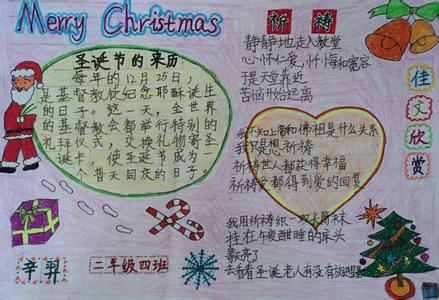 Merry Christmas
圣诞节的来历
每年的12月25日，
是基督教徒纪念耶酥诞生
的日子。这一天，全世界
的基督教会都举行特别的
礼拜仪式，交换礼物寄圣
诞卡，使圣诞节成为
个普天同庆的日子。
辛羿
二年级四班
祈祷
静静地走入教堂
心怀仁爱，忏悔和宽容
于是天堂靠近
苦恼开始远离
我不知上帝和佛祖是什么关系
我只是想祈祷
祈祷世人都获得幸福
祈祷爱都得到爱的回复
我用祈祷织一双长筒袜
挂在午夜甜睡的床头
天亮了
去看看圣诞老人有没有放进
佳文欣赏